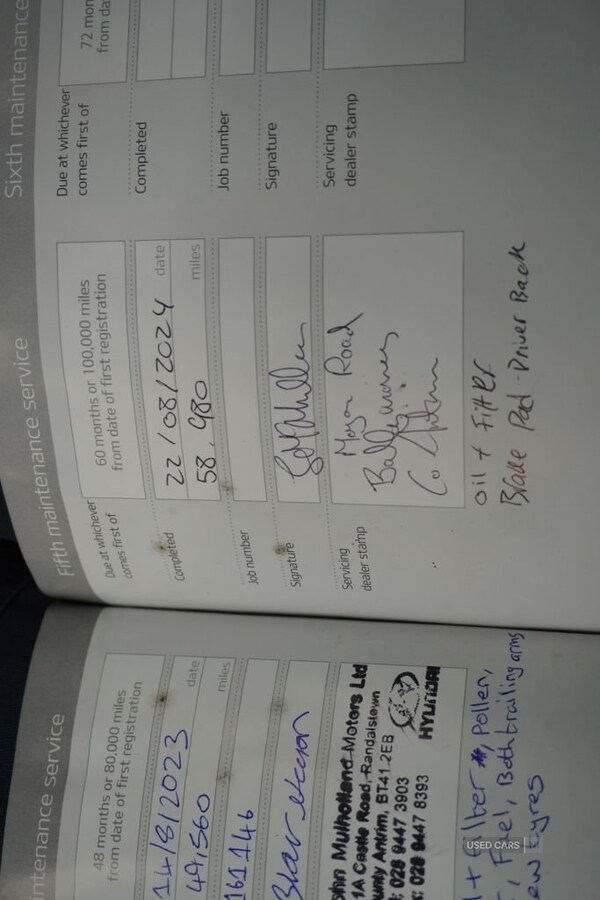 ntenance service
48 months or 80,000 miles
from date of first registration
14/8/2023 date
49,560 miles
161146
Mulholland Motors Ltd
1A Castle Road, Randalstown
unty Antrim, BT41 2EB
: 028 9447 3903
: 028 9447 8393
HYUNDAI
+ Filter, Pollen,
, Fuel, Both trailing arms
ew tyres
Fifth maintenance service
Due at whichever
comes first of
60 months or 100,000 miles
from date of first registration
Completed
22/08/2024 date
58,980 miles
Job number
Signature
Servicing
dealer stamp
Road
Co
oil + Filter
Brake Pad - Driver Back
Sixth maintenance
Due at whichever
comes first of
72 mon
from da
Completed
Job number
Signature
Servicing
dealer stamp
USED CARS